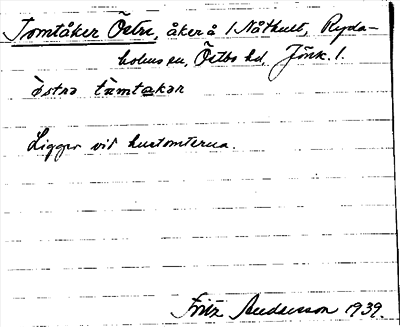 Tomtåker Östre, åker å 1 Nåthult, Ryda-
holms sn, Östbo hd, Jönk. l.
östrə tʊmtakər
Ligger vid hustomterna.
Fritz Andersson 1939.